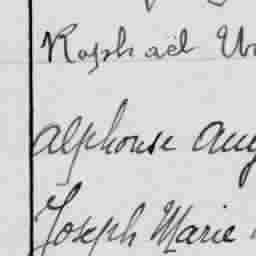 Raphaël
Alphonse Aug
Joseph Marie